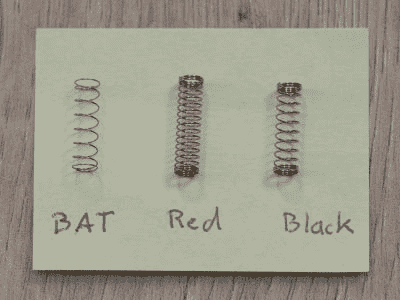 BAT Red Black